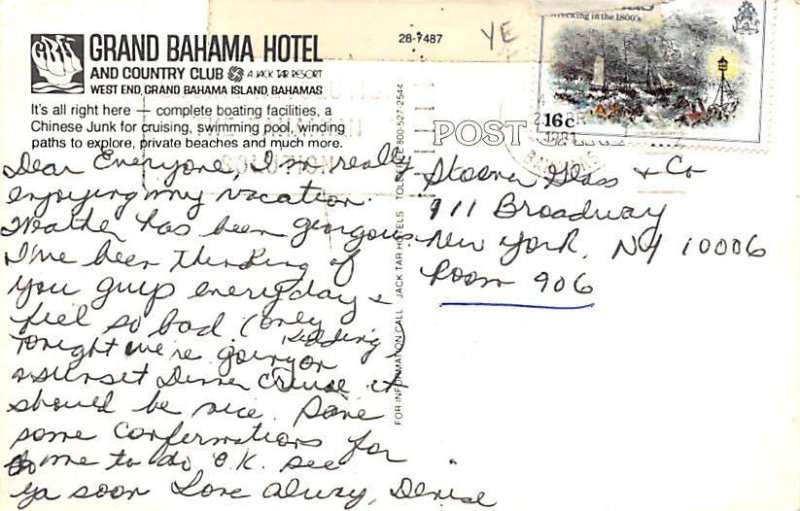 28-7487
YE
wrecking in the 1800's
GBH
GRAND BAHAMA HOTEL
AND COUNTRY CLUB A JACK TAR RESORT
WEST END, GRAND BAHAMA ISLAND, BAHAMAS
It's all right here — complete boating facilities, a
Chinese Junk for cruising, swimming pool, winding
paths to explore, private beaches and much more.
16c
1981
BAHAMAS
POST
Dear Everyone, I'm really
enjoying my vacation.
Weather has been georgous
I've been thinking of
you guys everyday &
feel so bad. (only
kidding)
Tonight we're going on
a sunset Dinner Cruise it
should be nice. Save
some confermations for
me to do O.K. see
ya soon Love always, Denise
FOR INFORMATION CALL JACK TAR HOTELS TOLL FREE 800-527-2544
& Co
111 Broadway
New York, NY 10006
Room 906